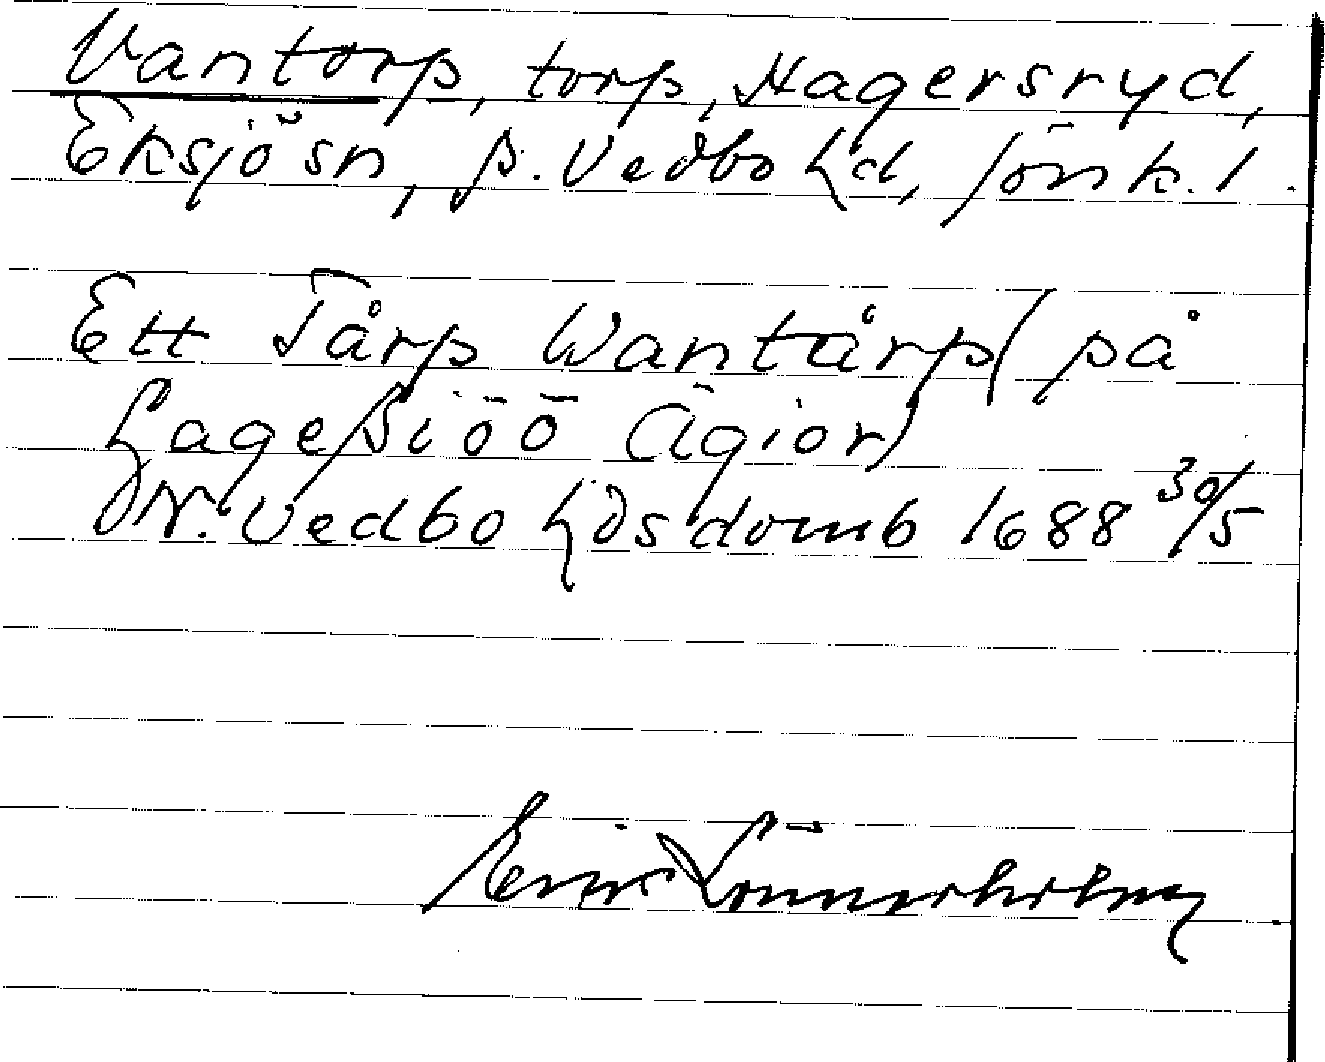 Vantorp, torp, Hagersryd,
Eksjö sn, S. Vedbo hd, Jönk. l.
Ett Tårp Wantårp (på
Lageßiöö Ägior)
N. Vedbo hds domb 1688 30/5
Erik Lönnerholm